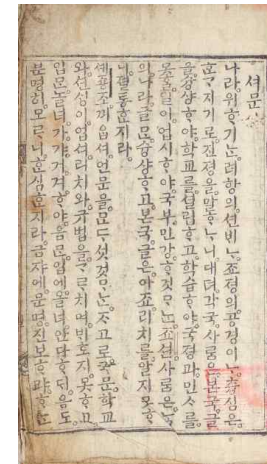 셔문
나라위ᄒᆞ기ᄂᆞᆫ려항의션ᄇᆡ나죠졍의공경이나츙심은
ᄒᆞᆫ가지기로진졍을말ᄒᆞᄂᆞ니대뎌각국사ᄅᆞᆷ은본국글
을슝샹ᄒᆞ야학교를셜립ᄒᆞ고학습ᄒᆞ야국졍과민ᄉᆞ를
못ᄒᆞᆯ일이업시ᄒᆞ야국부민강ᄒᆞ것ᄆᆞᄂᆞᆫ죠션사ᄅᆞᆷ은ᄂᆞᆷ
의나라글만슝샹ᄒᆞ고본국글은아죠리치를알지못ᄒᆞ
니졀통ᄒᆞᆫ지라
셰죵조ᄭᅴ옵셔언문을ᄆᆞᆫ드셧것ᄆᆞᄂᆞᆫᄌᆞ고로국문학교
와션ᄉᆡᆼ이업셔리치와규범을ᄀᆞᄅᆞ치며ᄇᆡ호지못ᄒᆞ고
입만놀녀가갸거겨ᄒᆞ야음만입에올녀안다ᄒᆞ되음도
분명히모로니ᄒᆞᆫ심ᄒᆞᆫ지라금쟈에문명진보ᄒᆞ랴ᄒᆞ고